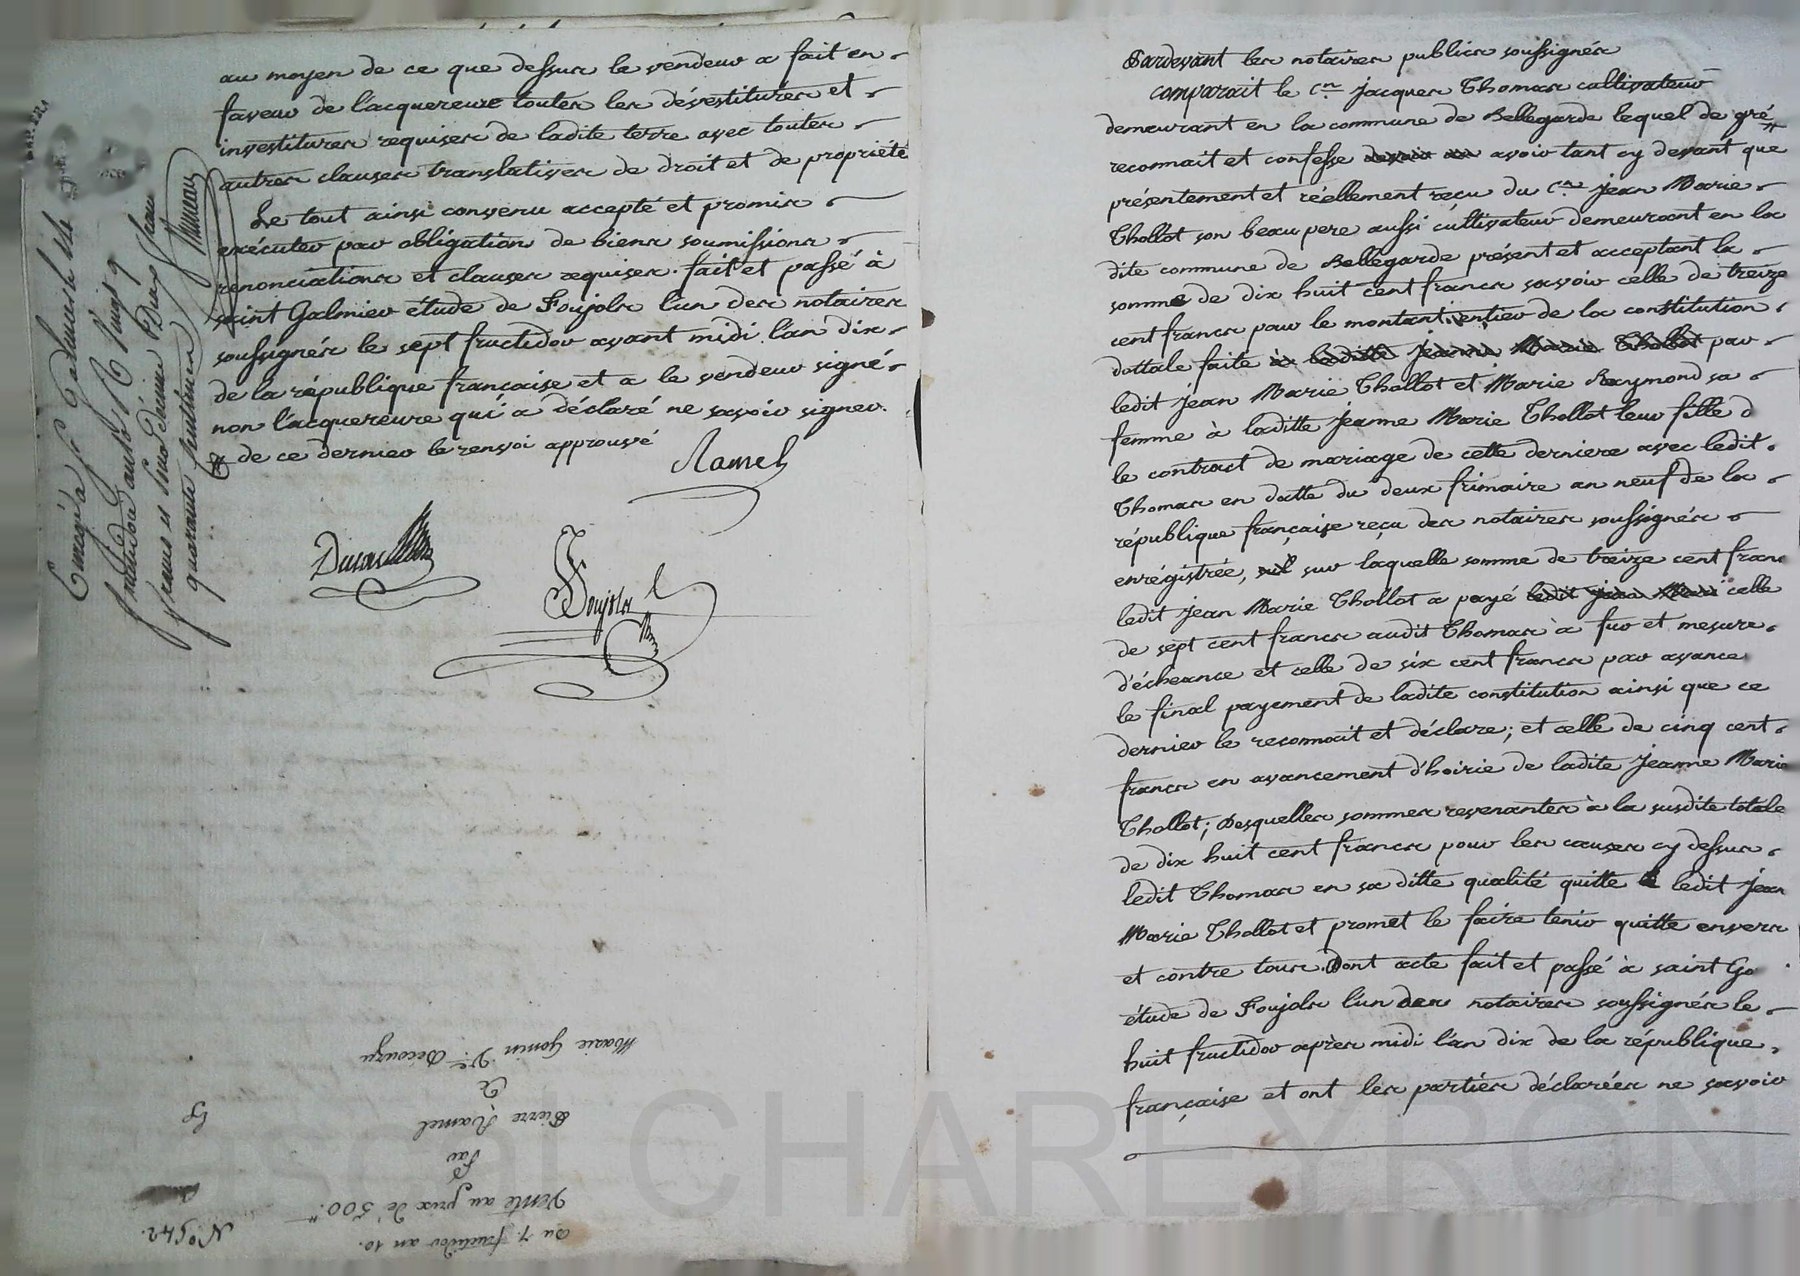 au moyen de ce que dessus le vendeur a fait en
faveur de l'acquereure toutes les dévestitures et
investitures requises de ladite terre avec toutes
autres clauses translatives de droit et de propriété
Le tout ainsi convenu accepté et promis
exécuter par obligation de biens soumissions
renonciations et clauses requises. fait et passé à
saint Galmier étude de Foujols l'un des notaires
soussignés le sept fructidor avant midi l'an dix
de la république française et a le vendeur signé
non l'acquereure qui a déclaré ne savoir signer.
de ce dernier le renvoi approuvé
Ramel
Foujols
Enregé à St Galmier le
fructidor an dix
francs et
quarante centimes
du 7. fructidor an 10.
Vente au prix de 500.
Par
Pierre Ramel
à
Marie Gonin Ve Decouzu
N° 542.
Pardevant les notaires publics soussignés
comparait le Cen Jacques Thomas cultivateur
demeurant en la commune de Bellegarde lequel de gré
reconnait et confesse avoir tant cy devant que
présentement et réellement reçu du Cen Jean Marie
Thollot son beau pere aussi cultivateur demeurant en la
dite commune de Bellegarde présent et acceptant la
somme de dix huit cent francs savoir celle de treize
cent francs pour le montant entier de la constitution
dottale faite à laditte Jeanne Marie Thollot par
ledit Jean Marie Thollot et Marie Raymond sa
femme à laditte Jeanne Marie Thollot leur fille d
le contract de mariage de cette derniere avec ledit
Thomas en datte du deux frimaire an neuf de la
république française reçu des notaires soussignés
enrégistrée, sur laquelle somme de treize cent franc
ledit Jean Marie Thollot a payé ledit Jean Marie celle
de sept cent francs audit Thomas à fur et mesure
d'écheance et celle de six cent francs par avance
le final payement de ladite constitution ainsi que ce
dernier le reconnoit et déclare; et celle de cinq cent
francs en avancement d'hoirie de ladite Jeanne Marie
Thollot; Desquelles sommes revenantes à la susdite totale
de dix huit cent francs pour les causes cy dessus
ledit Thomas en sa ditte qualité quitte ledit Jean
Marie Thollot et promet le faire tenir quitte envers
et contre tous. Dont acte fait et passé à saint Ga
étude de Foujols l'un des notaires soussignés le
huit fructidor après midi l'an dix de la république
française et ont les parties déclarées ne savoir
Pascal CHAREYRON